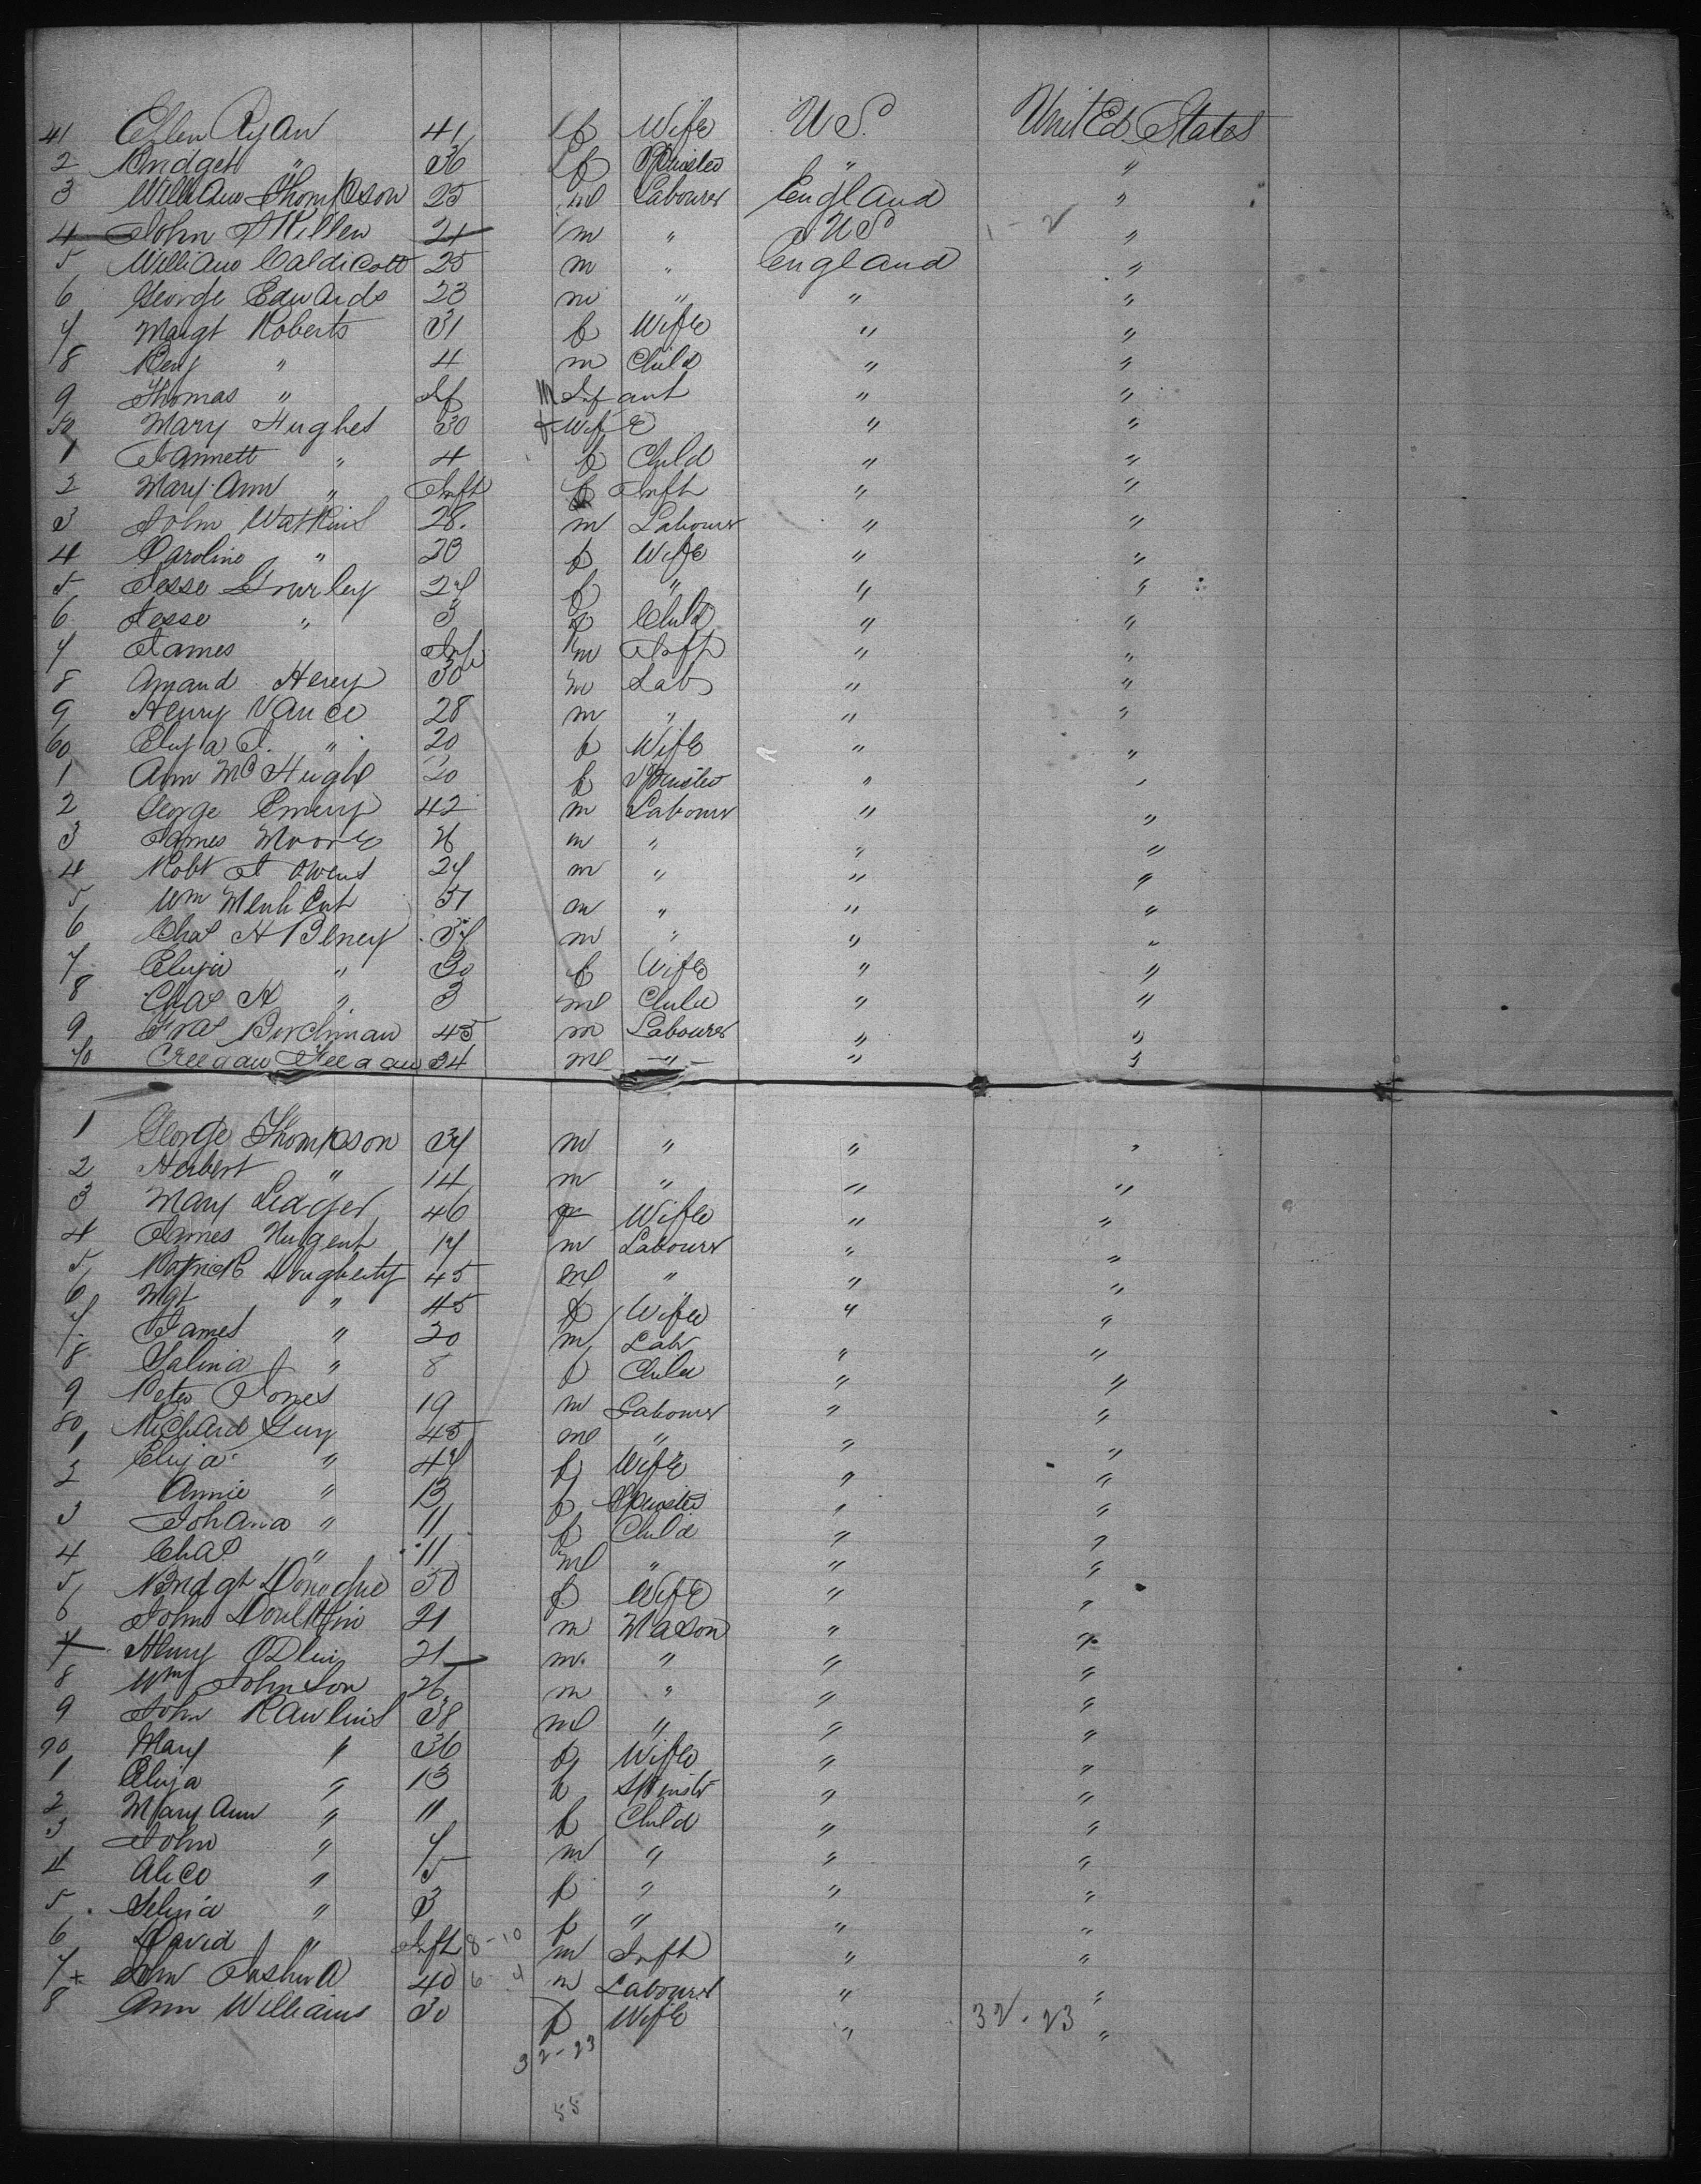 41 Ellen Ryan 41 f Wife U S. United States
2 Bridget " 36 f Spinster " "
3 William Thompson 25 m Labourer England "
4 John Killen 21 m " U S "
5 William Caldicott 25 m " England "
6 George Edwards 23 m " " "
7 Margt Roberts 31 f Wife " "
8 Benj " 4 m Child " "
9 Thomas " Inf M Infant " "
50 Mary Hughes 30 f Wife " "
1 Jannett " 4 f Child " "
2 Mary Ann " Inft f Inft " "
3 John Watkins 28. m Labourer " "
4 Caroline " 28 f Wife " "
5 Jesse 27 f " " "
6 Jesse " 3 f Child " "
7 James Inf m Inft " "
8 Amand 30 m Lab " "
9 Henry Vance 28 m " " "
60 Eliza J. " 20 f Wife " "
1 Ann McHugh 20 f Spinster " "
2 George Emery 42 m Labourer " "
3 James Moore 26 m " " "
4 Robt J Owens 27 m " " "
5 Wm 31 m " " "
6 Chas H Beney 37 m " " "
7 Eliza " 30 f Wife " "
8 Chas H " 3 m Child " "
9 Birchman 45 m Labourer " "
70 Feegan 34 m " " "
1 George Thompson 37 m " " "
2 Herbert " 14 m " " "
3 Mary Ledger 46 f Wife " "
4 James Nugent 17 m Labourer " "
5 Patrick Dougherty 45 m " " "
6 Mgt " 45 f Wife " "
7 James " 20 m Labr " "
8 Salina " 8 f Child " "
9 Peter Jones 19 m Labourer " "
80 Richard Guy 45 m " " "
1 Eliza " 47 f Wife " "
2 Annie " 13 f Spinster " "
3 Johana " 11 f Child " "
4 Chas " 11 m " " "
5 Bridgt Donoghue 50 f Wife " "
6 John 21 m Mason " "
7 Henry 21 m. " " "
8 Wm Johnson 26 m " " "
9 John Rawlins 38 m " " "
90 Mary " 36 f Wife " "
1 Eliza " 13 f Spinstr " "
2 Mary Ann " 11 f Child " "
3 John " 7 m " " "
4 Alice " 5 f " " "
5 Selina " 3 f " " "
6 David " Inft 8-10 m Inft " "
7 + Joshua 40 6-4 m Labourer " "
8 Ann Williams 30 f Wife " 32-23 "
32-23
55